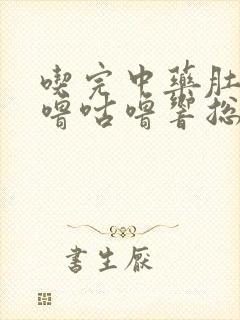 喫完中藥肚
嚕咕嚕響捴
書生厭